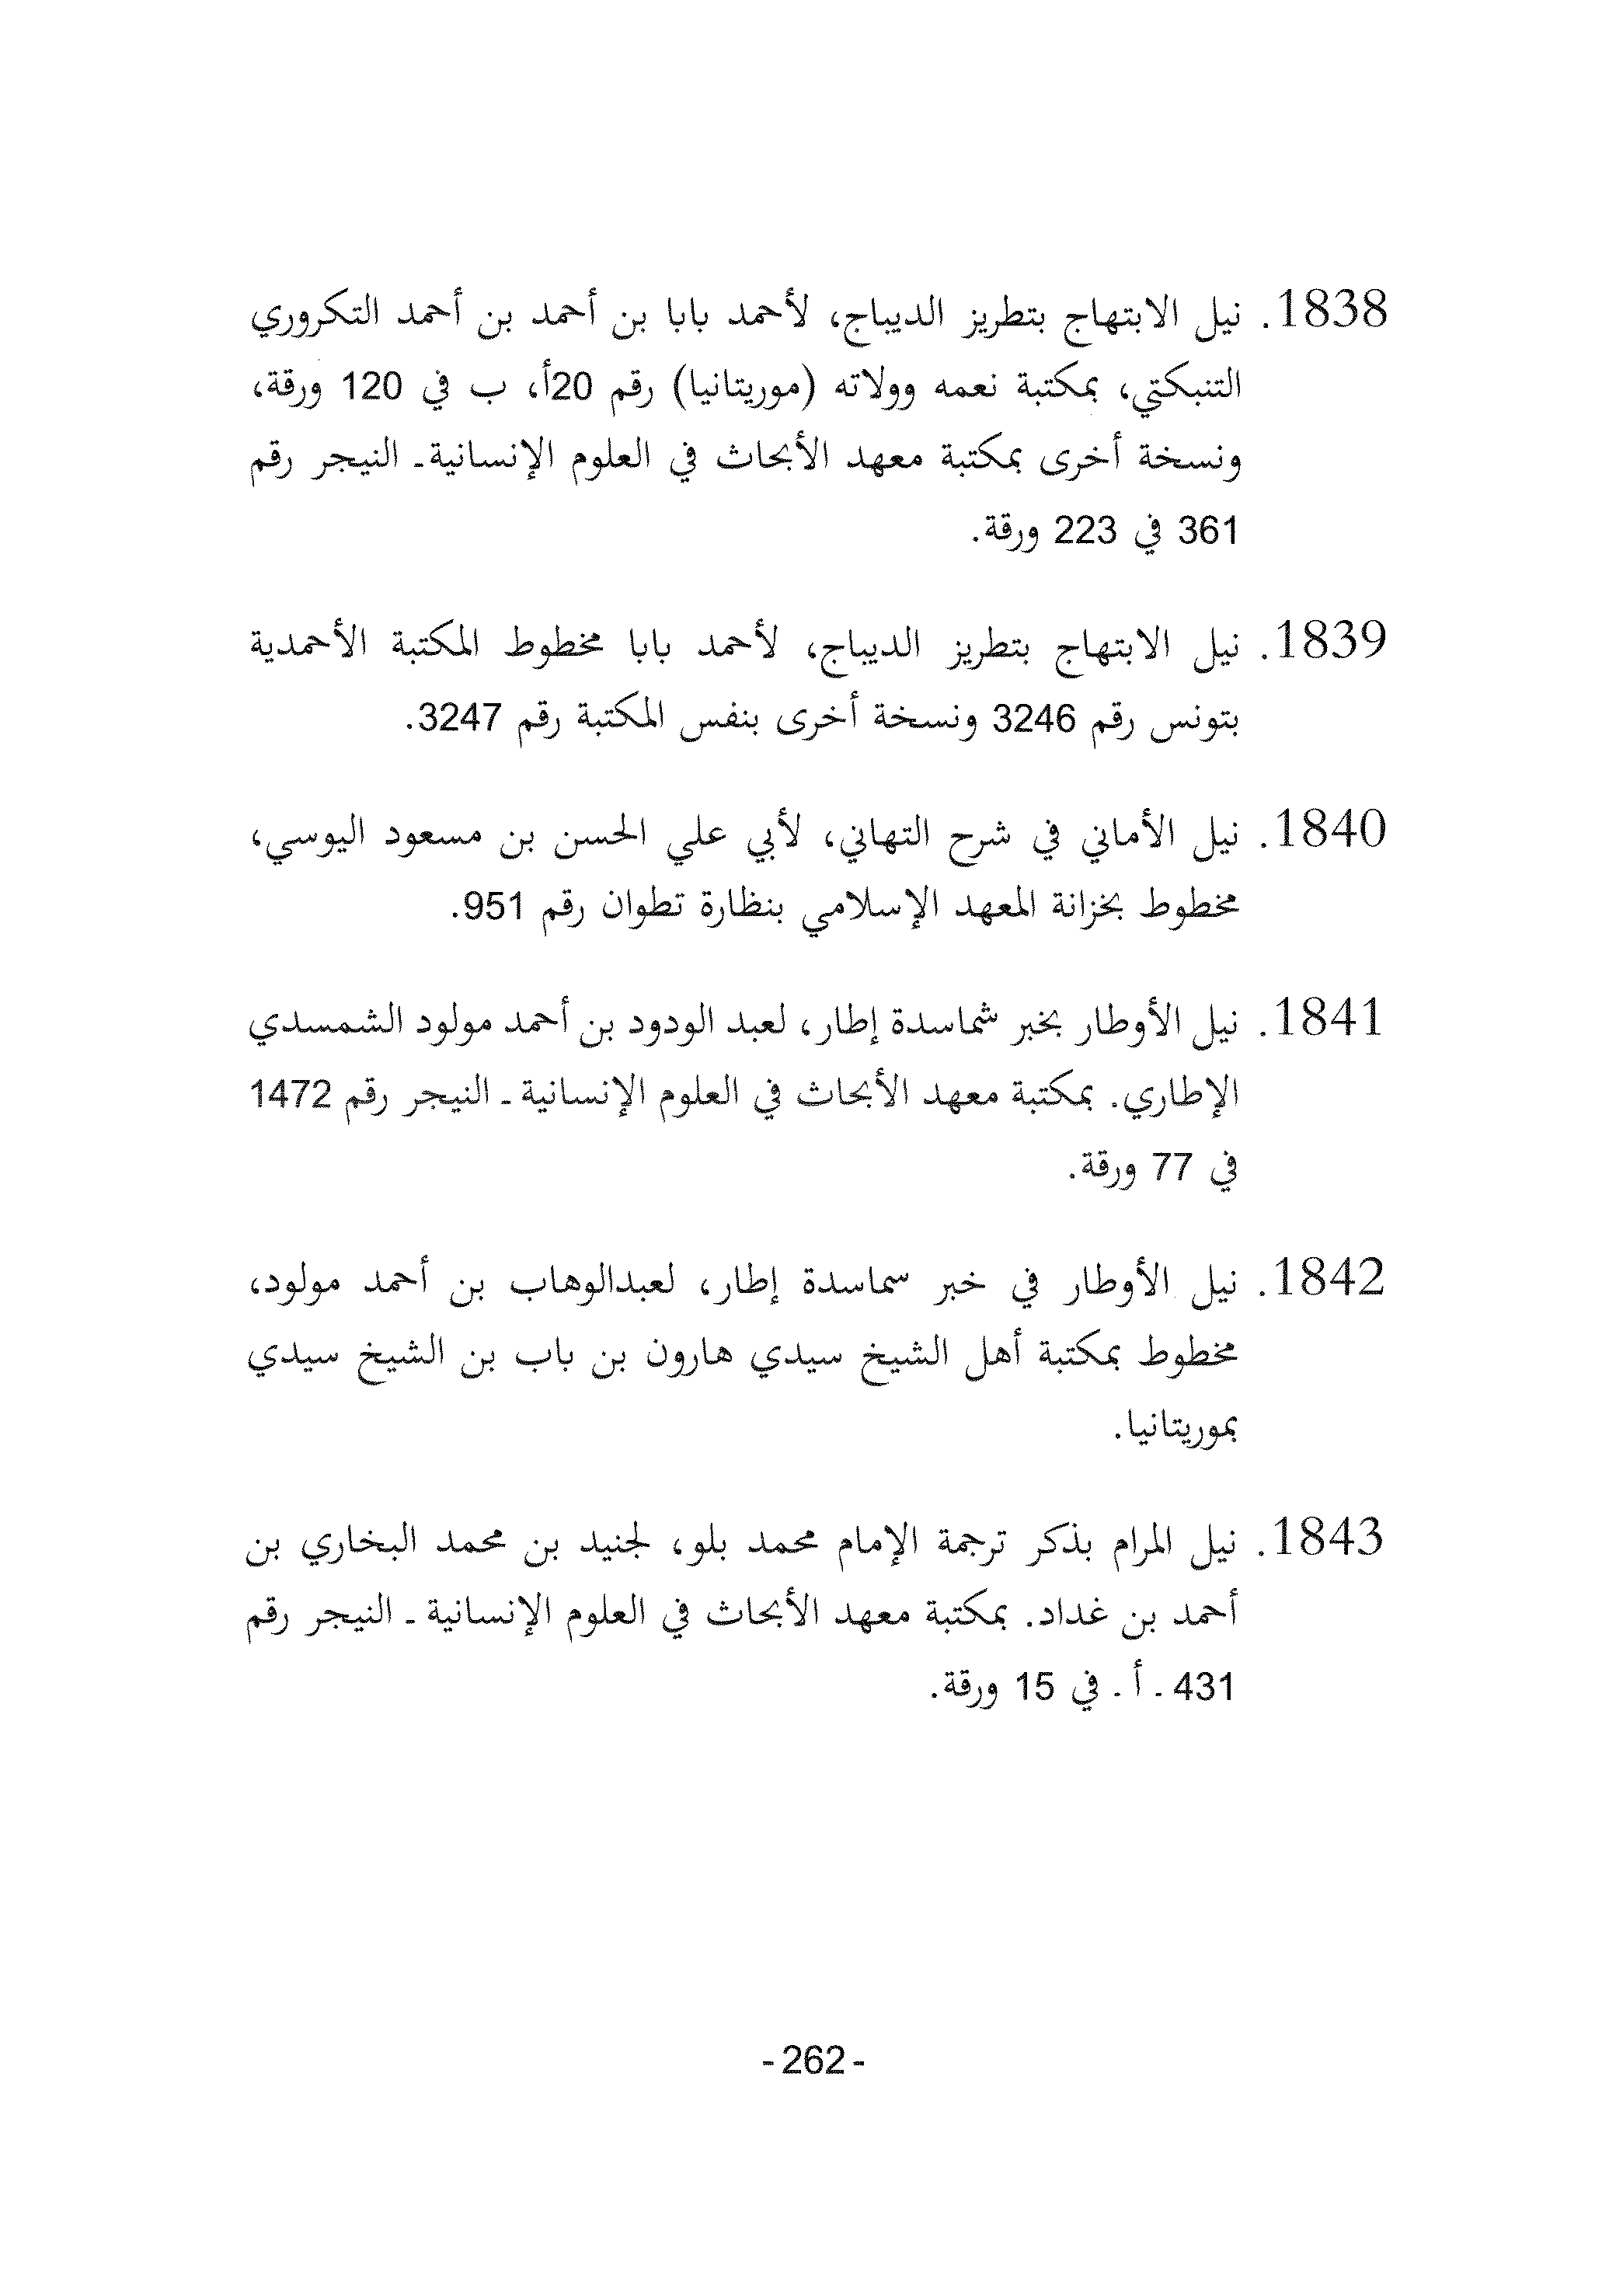 1838. نيل الابتهاج بتطريز الديباج، لأحمد بابا بن أحمد بن أحمد التكروري
التنبكتي، بمكتبة نعمه وولاته (موريتانيا) رقم 20أ، ب في 120 ورقة،
ونسخة أخرى بمكتبة معهد الأبحاث في العلوم الإنسانية- النيجر رقم
361 في 223 ورقة.
1839. نيل الابتهاج بتطريز الديباج، لأحمد بابا مخطوط المكتبة الأحمدية
بتونس رقم 3246 ونسخة أخرى بنفس المكتبة رقم 3247.
1840. نيل الأماني في شرح التهاني، لأبي علي الحسن بن مسعود اليوسي،
مخطوط بخزانة المعهد الإسلامي بنظارة تطوان رقم 951.
1841. نيل الأوطار بخبر شماسدة إطار، لعبد الودود بن أحمد مولود الشمسدي
الإطاري. بمكتبة معهد الأبحاث في العلوم الإنسانية - النيجر رقم 1472
في 77 ورقة.
1842. نيل الأوطار في خبر سماسدة إطار، لعبدالوهاب بن أحمد مولود،
مخطوط بمكتبة أهل الشيخ سيدي هارون بن باب بن الشيخ سيدي
بموريتانيا.
1843. نيل المرام بذكر ترجمة الإمام محمد بلو، لجنيد بن محمد البخاري بن
أحمد بن غداد. بمكتبة معهد الأبحاث في العلوم الإنسانية - النيجر رقم
431 - أ - في 15 ورقة.
- 262 -